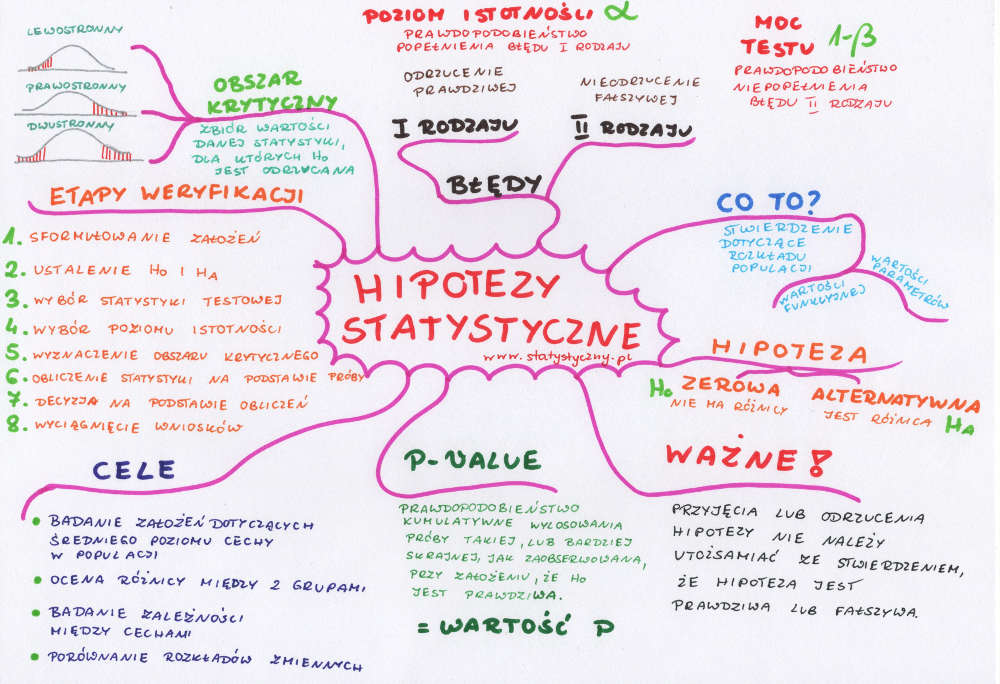 POZIOM ISTOTNOŚCI α
PRAWDOPODOBIEŃSTWO
POPEŁNIENIA BŁĘDU I RODZAJU
MOC
TESTU 1-β
PRAWDOPODOBIEŃSTWO
NIEPOPEŁNIENIA
BŁĘDU II RODZAJU
LEWOSTRONNY
PRAWOSTRONNY
DWUSTRONNY
OBSZAR
KRYTYCZNY
ZBIÓR WARTOŚCI
DANEJ STATYSTYKI,
DLA KTÓRYCH H0
JEST ODRZUCANA
ODRZUCENIE
PRAWDZIWEJ
I RODZAJU
NIEODRZUCENIE
FAŁSZYWEJ
II RODZAJU
BŁĘDY
ETAPY WERYFIKACJI
1. SFORMUŁOWANIE ZAŁOŻEŃ
2. USTALENIE H0 I HA
3. WYBÓR STATYSTYKI TESTOWEJ
4. WYBÓR POZIOMU ISTOTNOŚCI
5. WYZNACZENIE OBSZARU KRYTYCZNEGO
6. OBLICZENIE STATYSTYKI NA PODSTAWIE PRÓBY
7. DECYZJA NA PODSTAWIE OBLICZEŃ
8. WYCIĄGNIĘCIE WNIOSKÓW
HIPOTEZY
STATYSTYCZNE
www.statystyczny.pl
CO TO?
STWIERDZENIE
DOTYCZĄCE
ROZKŁADU
POPULACJI
WARTOŚCI
FUNKCYJNEJ
WARTOŚCI
PARAMETRÓW
HIPOTEZA
H0 ZEROWA
NIE MA RÓŻNICY
ALTERNATYWNA
JEST RÓŻNICA HA
CELE
• BADANIE ZAŁOŻEŃ DOTYCZĄCYCH
ŚREDNIEGO POZIOMU CECHY
W POPULACJI
• OCENA RÓŻNICY MIĘDZY 2 GRUPAMI
• BADANIE ZALEŻNOŚCI
MIĘDZY CECHAMI
• PORÓWNANIE ROZKŁADÓW ZMIENNYCH
P-VALUE
PRAWDOPODOBIEŃSTWO
KUMULATYWNE WYLOSOWANIA
PRÓBY TAKIEJ, LUB BARDZIEJ
SKRAJNEJ, JAK ZAOBSERWOWANA,
PRZY ZAŁOŻENIU, ŻE H0
JEST PRAWDZIWA.
= WARTOŚĆ P
WAŻNE!
PRZYJĘCIA LUB ODRZUCENIA
HIPOTEZY NIE NALEŻY
UTOŻSAMIAĆ ZE STWIERDZENIEM,
ŻE HIPOTEZA JEST
PRAWDZIWA LUB FAŁSZYWA.